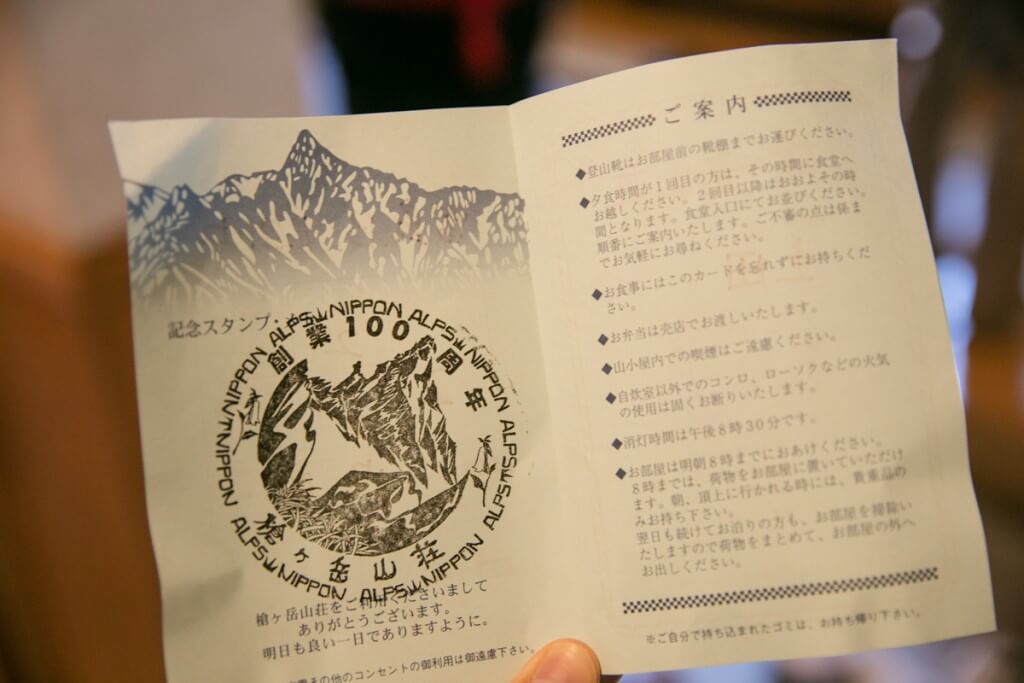 記念スタンプ・
NIPPON ALPS NIPPON ALPS NIPPON ALPS NIPPON ALPS NIPPON ALPS NIPPON ALPS
創業100周年
槍ヶ岳山荘
槍ヶ岳山荘をご利用くださいまして
ありがとうございます。
明日も良い一日でありますように。
その他のコンセントの御利用は御遠慮下さい。
ご案内
◆登山靴はお部屋前の靴棚までお運びください。
◆夕食時間が1回目の方は、その時間に食堂へ
お越しください。2回目以降はおおよその時
間となります。食堂入口にてお並びください。
順番にご案内いたします。ご不審の点は係ま
でお気軽にお尋ねください。
◆お食事にはこのカードを忘れずにお持ちくだ
さい。
◆お弁当は売店でお渡しいたします。
◆山小屋内での喫煙はご遠慮ください。
◆自炊室以外でのコンロ、ローソクなどの火気
の使用は固くお断りいたします。
◆消灯時間は午後8時30分です。
◆お部屋は明朝8時までにおあけください。
8時までは、荷物をお部屋に置いていただけ
ます。朝、頂上に行かれる時には、貴重品の
みお持ち下さい。
翌日も続けてお泊りの方も、お部屋を掃除い
たしますので荷物をまとめて、お部屋の外へ
お出しください。
※ご自分で持ち込まれたゴミは、お持ち帰り下さい。